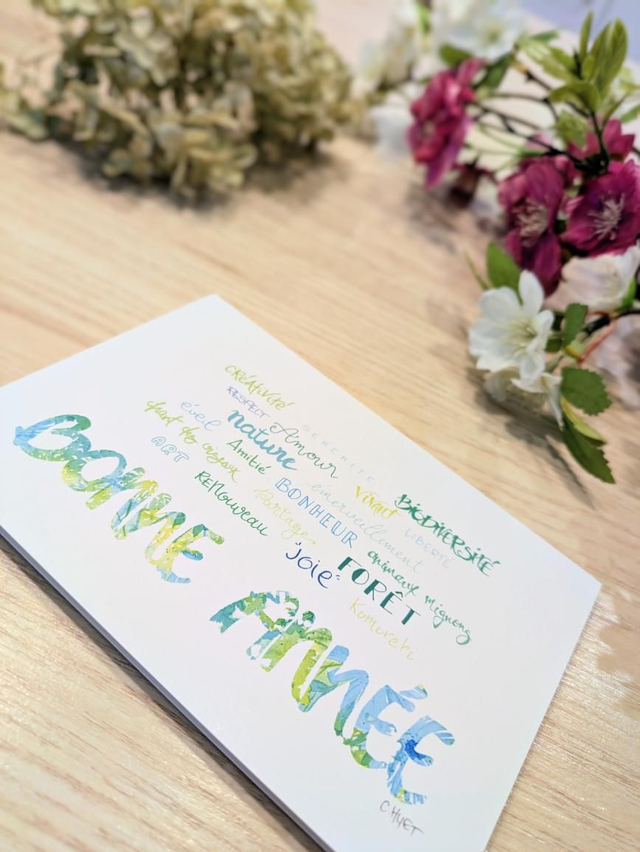 CRÉATIVITÉ SÉRÉNITÉ BIODIVERSITÉ
RESPECT Amour VIVANT LIBERTÉ
éveil nature émerveillement animaux mignons
chant des oiseaux Amitié BONHEUR FORÊT
ART Renouveau partage joie Komorebi
BONNE ANNÉE
C.HUET